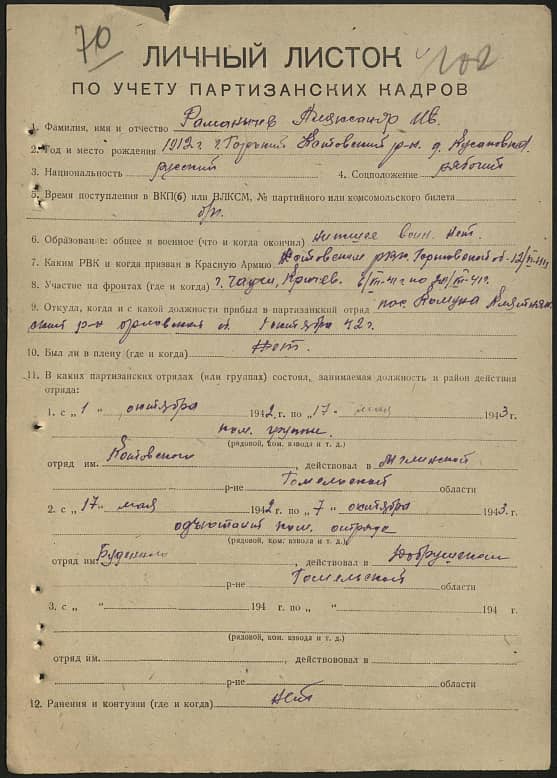 70
202
ЛИЧНЫЙ ЛИСТОК
ПО УЧЕТУ ПАРТИЗАНСКИХ КАДРОВ
1. Фамилия, имя и отчество Романычев Александр Ив.
2. Год и место рождения 1912 г. г. Горький Котовский р-н д.
3. Национальность русский 4. Соцположение рабочий
5. Время поступления в ВКП(б) или ВЛКСМ, № партийного или комсомольского билета
б/п.
6. Образование: общее и военное (что и когда окончил) низшее воен. нет.
7. Каким РВК и когда призван в Красную Армию РВК об.
8. Участие на фронтах (где и когда) г.
9. Откуда, когда и с какой должности прибыл в партизанский отряд пос Комуна
р-н орловская об. 1 октября 42 г.
10. Был ли в плену (где и когда) Нет.
11. В каких партизанских отрядах (или группах) состоял, занимаемая должность и район действия
отряда:
1. с „1“ октября 1942 г. по „17“ мая 1943 г.
ком. группы
(рядовой, ком. взвода и т. д.)
отряд им. Котовского, действовал в
р-не Гомельской области
2. с „17“ мая 1942 г. по „7“ октября 1943 г.
адъютант ком. отряда
(рядовой, ком. взвода и т. д.)
отряд им. Буденного, действовал в Добрушском
р-не Гомельской области
3. с „ “ 194 г. по „ “ 194 г.
(рядовой, ком. взвода и т. д.)
отряд им. , действовал в
р-не области
12. Ранения и контузии (где и когда) нет